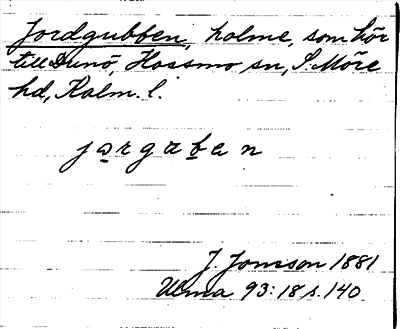 Jordgubben, holme, som hör
till Dunö, Hossmo sn, S. Möre
hd, Kalm. l.
jorgaben
J. Jonsson 1881
Ulma 93:18 s. 140.